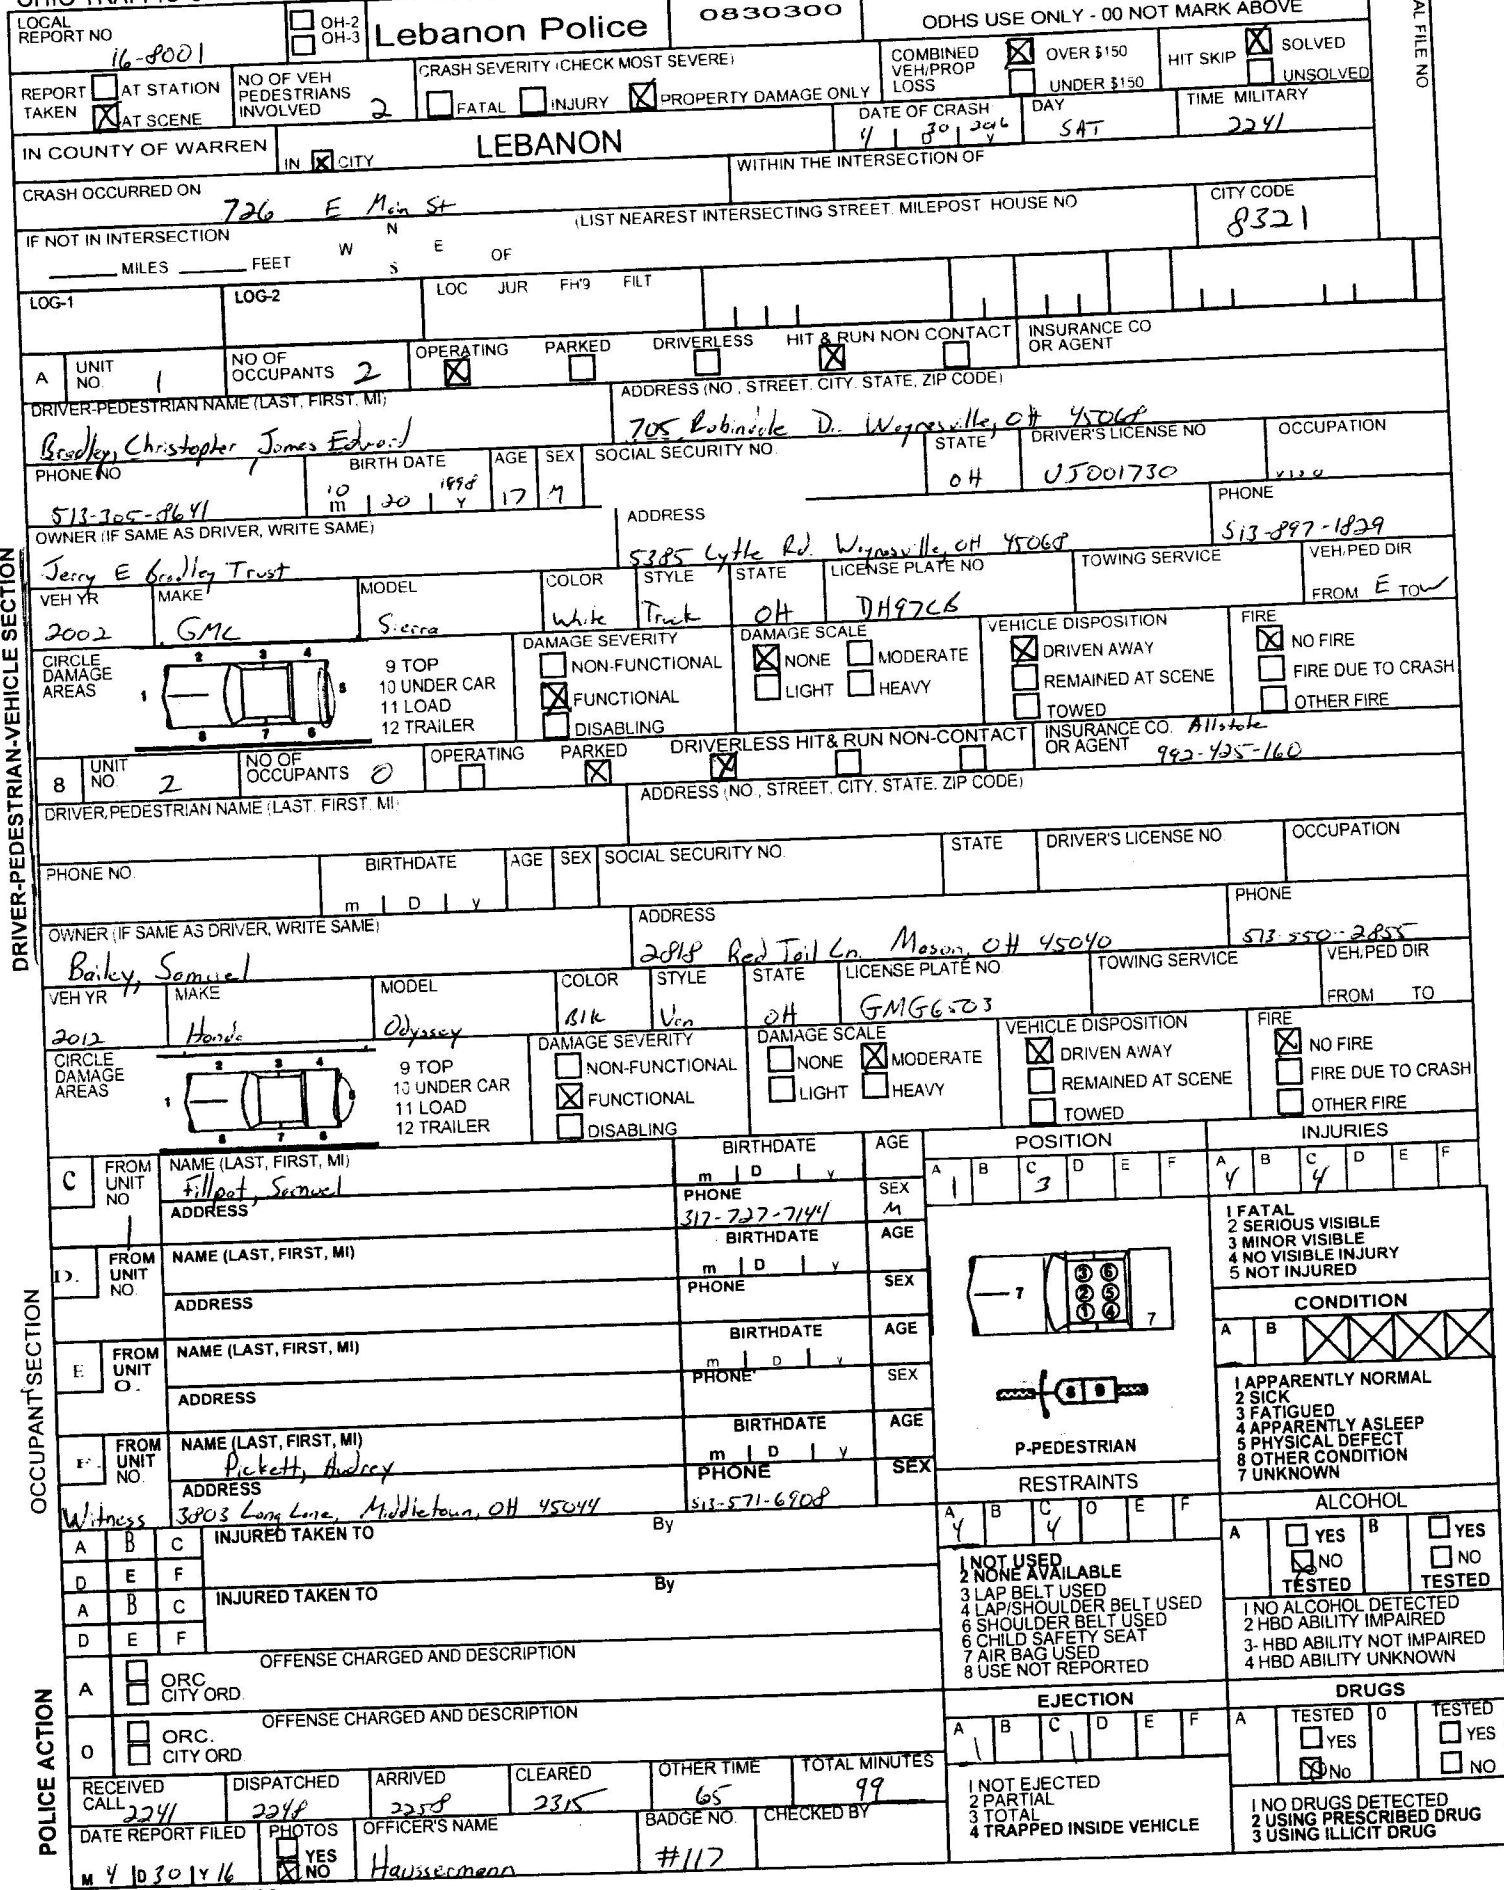 LOCAL
REPORT NO
16-8001
OH-2
OH-3
Lebanon Police
0830300
ODHS USE ONLY - 00 NOT MARK ABOVE
AL FILE NO
REPORT
TAKEN
AT STATION
AT SCENE
NO OF VEH
PEDESTRIANS
INVOLVED 2
CRASH SEVERITY (CHECK MOST SEVERE)
FATAL INJURY PROPERTY DAMAGE ONLY
COMBINED
VEH/PROP
LOSS
OVER $150
UNDER $150
HIT SKIP
SOLVED
UNSOLVED
IN COUNTY OF WARREN
IN CITY
LEBANON
DATE OF CRASH
4 30 2016
DAY
SAT
TIME MILITARY
2241
CRASH OCCURRED ON
726 E Main St
WITHIN THE INTERSECTION OF
IF NOT IN INTERSECTION
MILES FEET
N
W E OF
S
(LIST NEAREST INTERSECTING STREET. MILEPOST HOUSE NO
CITY CODE
8321
LOG-1
LOG-2
LOC JUR FH'9 FILT
A
UNIT
NO. 1
NO OF
OCCUPANTS 2
OPERATING PARKED DRIVERLESS HIT & RUN NON CONTACT
INSURANCE CO
OR AGENT
DRIVER-PEDESTRIAN NAME (LAST, FIRST, MI)
Bradley, Christopher James Edward
ADDRESS (NO , STREET. CITY. STATE, ZIP CODE)
Waynesville, OH 45068
PHONE NO
513-305-8641
BIRTH DATE
10 20 1998
m Y
AGE
17
SEX
M
SOCIAL SECURITY NO.
STATE
OH
DRIVER'S LICENSE NO
UJ001730
OCCUPATION
OWNER (IF SAME AS DRIVER, WRITE SAME)
Jerry E Bradley Trust
ADDRESS
5385 Lytle Rd. Waynesville, OH 45068
PHONE
513-897-1829
VEH YR
2002
MAKE
GMC
MODEL
Sierra
COLOR
White
STYLE
Truck
STATE
OH
LICENSE PLATE NO
DH97CB
TOWING SERVICE
VEH/PED DIR
FROM E TO W
CIRCLE
DAMAGE
AREAS
1 2 3 4 5 6 7 8
9 TOP
10 UNDER CAR
11 LOAD
12 TRAILER
DAMAGE SEVERITY
NON-FUNCTIONAL
FUNCTIONAL
DISABLING
DAMAGE SCALE
NONE MODERATE
LIGHT HEAVY
VEHICLE DISPOSITION
DRIVEN AWAY
REMAINED AT SCENE
TOWED
FIRE
NO FIRE
FIRE DUE TO CRASH
OTHER FIRE
8
UNIT
NO. 2
NO OF
OCCUPANTS 0
OPERATING PARKED DRIVERLESS HIT & RUN NON-CONTACT
INSURANCE CO. Allstate
OR AGENT 992-425-160
DRIVER-PEDESTRIAN-VEHICLE SECTION
DRIVER,PEDESTRIAN NAME (LAST. FIRST, MI
ADDRESS (NO , STREET. CITY. STATE. ZIP CODE)
PHONE NO.
BIRTHDATE
m D y
AGE
SEX
SOCIAL SECURITY NO.
STATE
DRIVER'S LICENSE NO.
OCCUPATION
OWNER (IF SAME AS DRIVER, WRITE SAME)
Bailey, Samuel
ADDRESS
2818 Red Tail Ln. Mason, OH 45040
PHONE
513-550-2855
VEH YR
2012
MAKE
Honda
MODEL
Odyssey
COLOR
Blk
STYLE
Van
STATE
OH
LICENSE PLATE NO
GMG6503
TOWING SERVICE
VEH,PED DIR
FROM TO
CIRCLE
DAMAGE
AREAS
1 2 3 4 5 6 7 8
9 TOP
10 UNDER CAR
11 LOAD
12 TRAILER
DAMAGE SEVERITY
NON-FUNCTIONAL
FUNCTIONAL
DISABLING
DAMAGE SCALE
NONE MODERATE
LIGHT HEAVY
VEHICLE DISPOSITION
DRIVEN AWAY
REMAINED AT SCENE
TOWED
FIRE
NO FIRE
FIRE DUE TO CRASH
OTHER FIRE
OCCUPANT SECTION
C
FROM
UNIT
NO
1
NAME (LAST, FIRST, MI)
Fillpot, Samuel
ADDRESS
BIRTHDATE
m D y
AGE
PHONE
317-727-7144
SEX
M
D.
FROM
UNIT
NO.
NAME (LAST, FIRST, MI)
ADDRESS
BIRTHDATE
m D y
AGE
PHONE
SEX
E
FROM
UNIT
O.
NAME (LAST, FIRST, MI)
ADDRESS
BIRTHDATE
m D y
AGE
PHONE
SEX
F.
FROM
UNIT
NO.
Witness
NAME (LAST, FIRST, MI)
Pickett, Audrey
ADDRESS
3803 Long Lane, Middletown, OH 45044
BIRTHDATE
m D y
AGE
PHONE
513-571-6908
SEX
POSITION
A B C D E F
1 3
INJURIES
A B C D E F
4 4
1 FATAL
2 SERIOUS VISIBLE
3 MINOR VISIBLE
4 NO VISIBLE INJURY
5 NOT INJURED
7 3 6 2 5 1 4 7
8 9
P-PEDESTRIAN
CONDITION
A B
1 APPARENTLY NORMAL
2 SICK
3 FATIGUED
4 APPARENTLY ASLEEP
5 PHYSICAL DEFECT
8 OTHER CONDITION
7 UNKNOWN
RESTRAINTS
A B C O E F
4 4
1 NOT USED
2 NONE AVAILABLE
3 LAP BELT USED
4 LAP/SHOULDER BELT USED
6 SHOULDER BELT USED
6 CHILD SAFETY SEAT
7 AIR BAG USED
8 USE NOT REPORTED
ALCOHOL
A YES B YES
NO NO
TESTED TESTED
1 NO ALCOHOL DETECTED
2 HBD ABILITY IMPAIRED
3- HBD ABILITY NOT IMPAIRED
4 HBD ABILITY UNKNOWN
A B C
D E F
INJURED TAKEN TO By
A B C
D E F
INJURED TAKEN TO By
POLICE ACTION
A
ORC
CITY ORD.
OFFENSE CHARGED AND DESCRIPTION
O
ORC.
CITY ORD
OFFENSE CHARGED AND DESCRIPTION
EJECTION
A B C D E F
1 1
1 NOT EJECTED
2 PARTIAL
3 TOTAL
4 TRAPPED INSIDE VEHICLE
DRUGS
A TESTED O TESTED
YES YES
No NO
1 NO DRUGS DETECTED
2 USING PRESCRIBED DRUG
3 USING ILLICIT DRUG
RECEIVED
CALL 2241
DISPATCHED
2248
ARRIVED
2258
CLEARED
2315
OTHER TIME
65
TOTAL MINUTES
99
DATE REPORT FILED
M 4 D 30 Y 16
PHOTOS
YES
NO
OFFICER'S NAME
Haussermann
BADGE NO.
#117
CHECKED BY